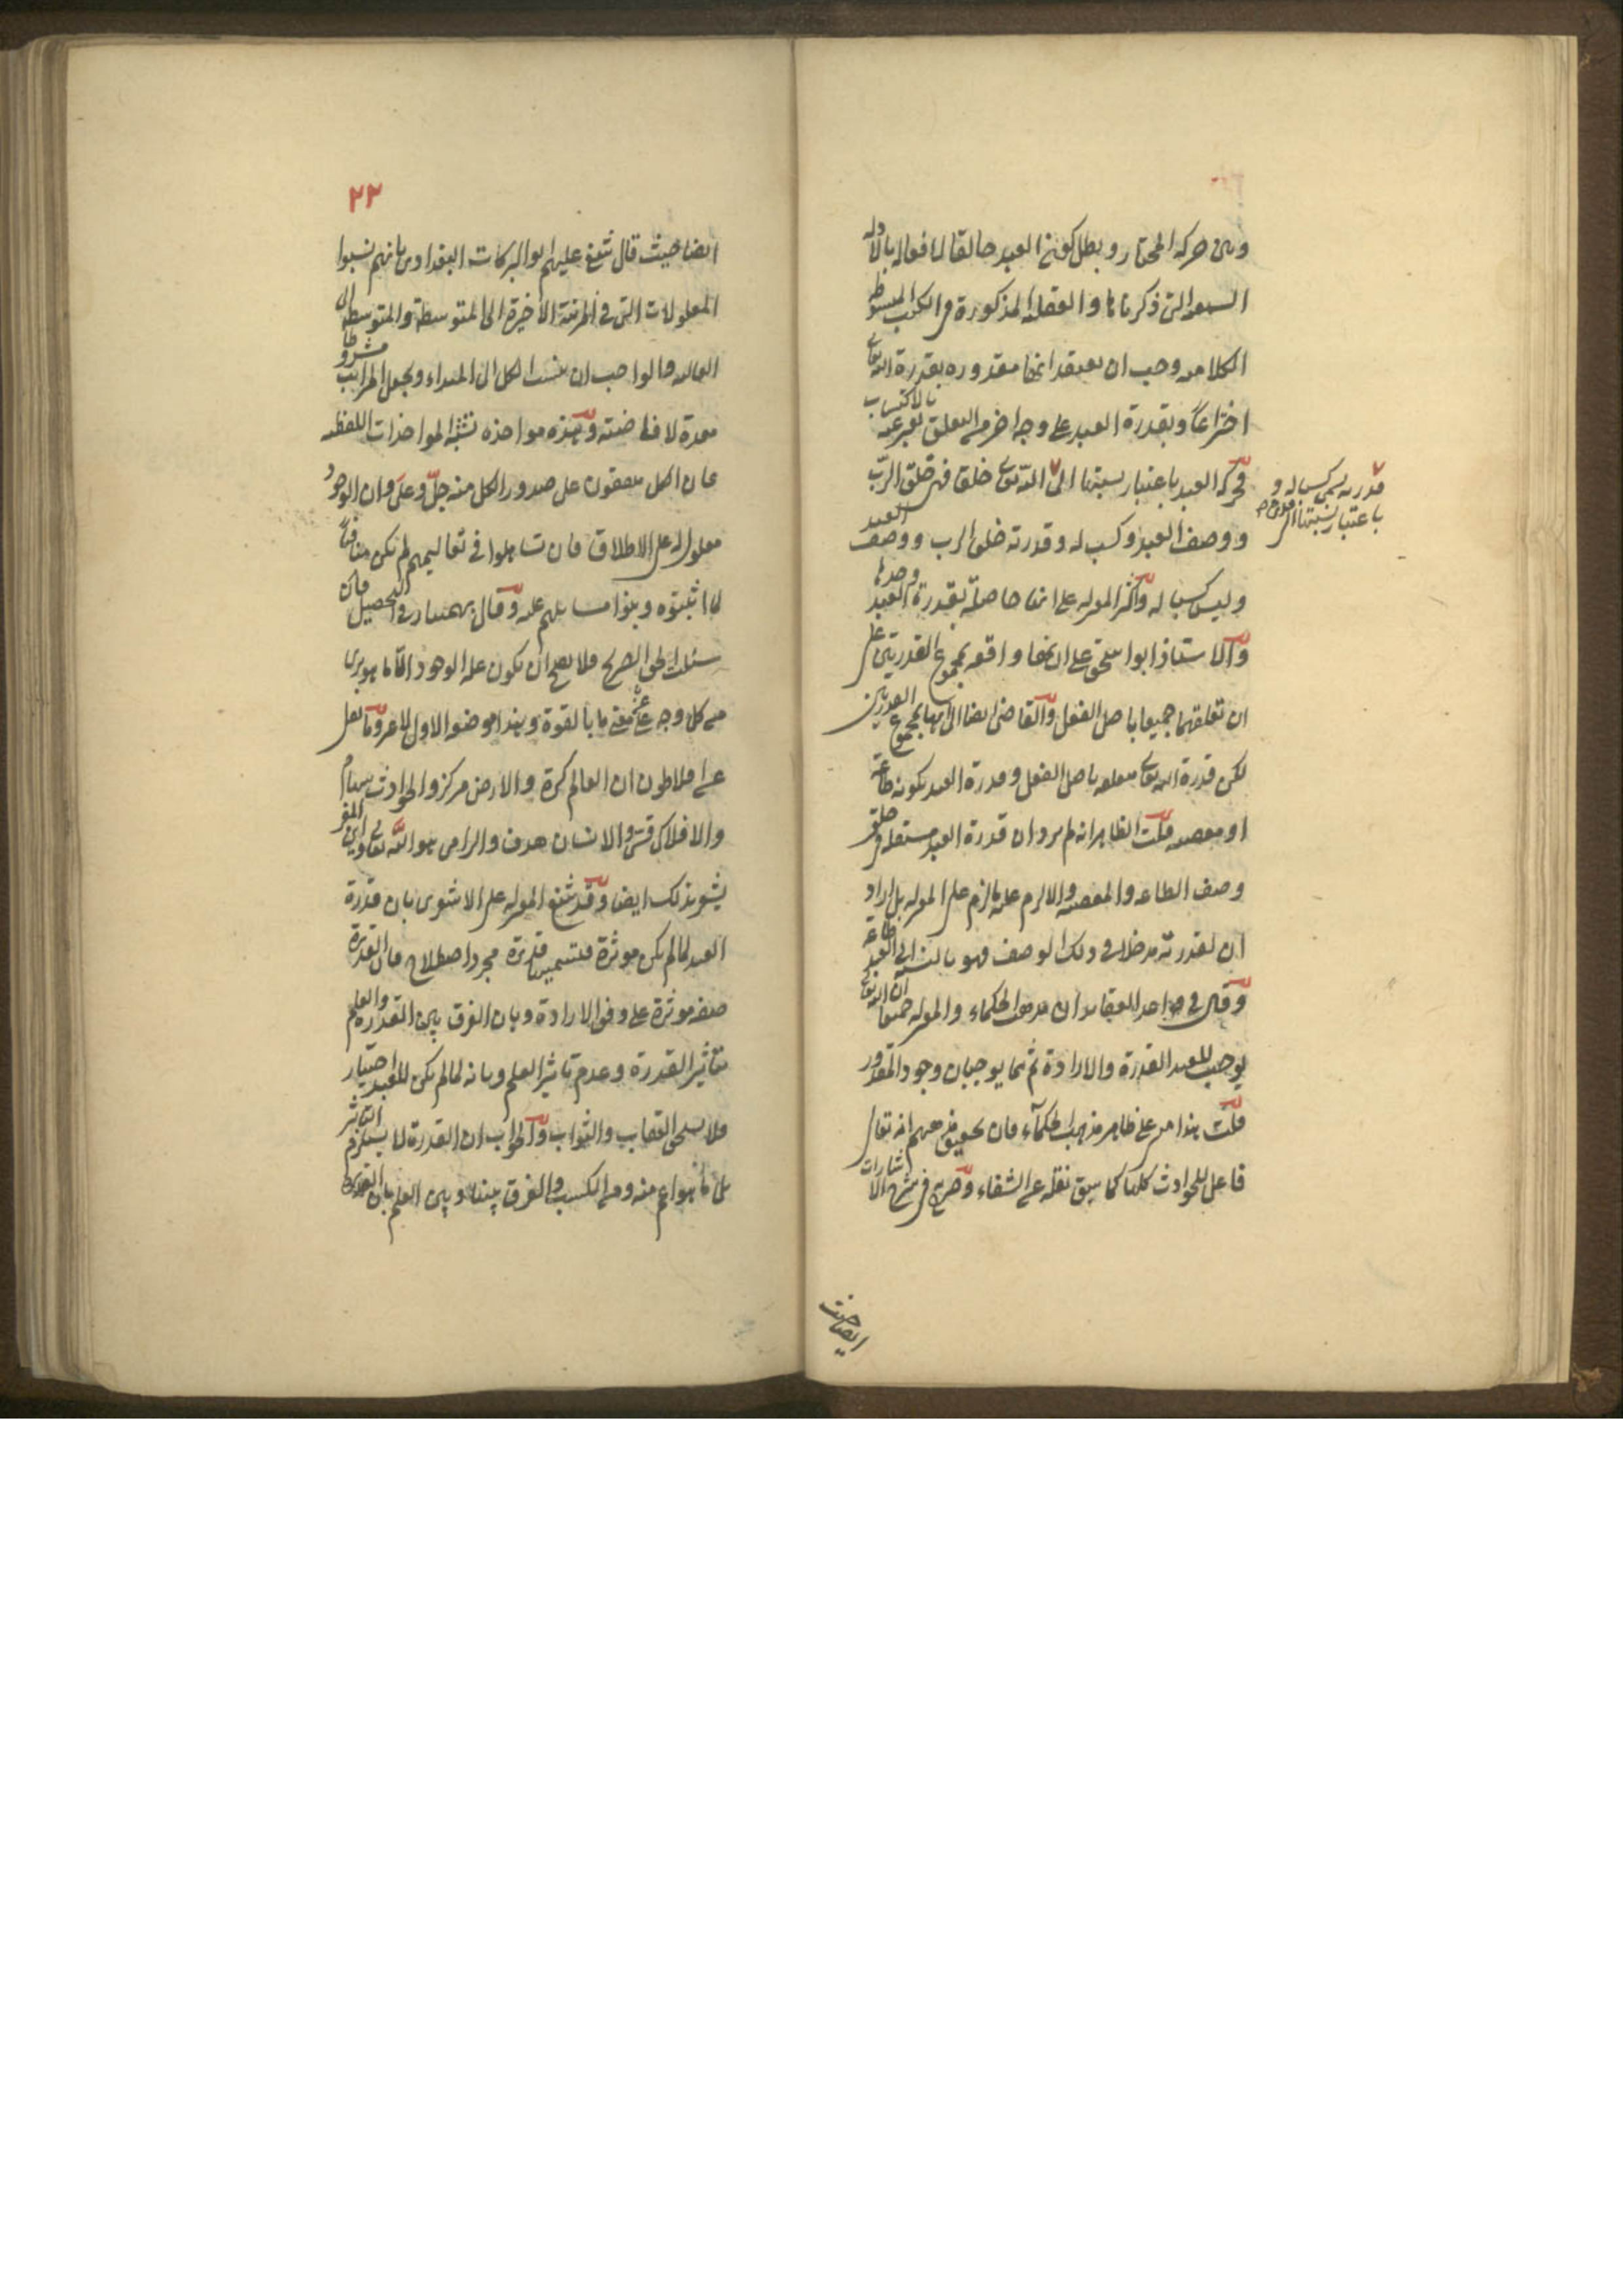 وبين حركة المختار وبطل كون العبد خالقا لافعاله بالادلة
السمعية التي ذكرناها والعقلية المذكورة في الكتب المبسوطة
الكلامية وجب ان يعتقد انها مقدورة بقدرة الله تعالى
اختراعا وبقدرة العبد على وجه اخر من التعلق يعبر عنه بالاكتساب
فحركة العبد باعتبار نسبتها الى الله تعالى خلق فهي خلق الرب
قدرته يسمى كسبا له و
باعتبار نسبتها الى
ووصف العبد وكسب له وقدرته خلق الرب ووصف العبد
وليس كسبا له واكثر المعتزلة على انها حاصلة بقدرة العبد وحدها
والاستاذ ابو اسحق على انها واقعة بمجموع القدرتين على
ان تعلقهما جميعا باصل الفعل والقاضي ايضا الى انها بمجموع القدرتين
لكن قدرة الله تعالى متعلقة باصل الفعل وقدرة العبد بكونه طاعة
او معصية قلت الظاهر انه لم يرد ان قدرة العبد مستقلة في خلق
وصف الطاعة والمعصية والا لزم عليه ما لزم على المعتزلة بل اراد
ان لقدرته مدخلا في ذلك الوصف فهو بالنسبة الى العبد طاعة
وقال في المعتزلة جميعا ان الله تعالى
يوجب للعبد القدرة والارادة ثم هما يوجبان وجود المقدور
قلت هذا مر على ظاهر مذهب الحكماء فان تحقيق مذهبهم انه تعالى
فاعل للحوادث كلها كما سبق نقله عن الشفاء وصرح في شرح الاشارات
ايضا حيث
٢٢
ايضا حيث قال شنع عليهم ابو البركات البغدادي بانهم نسبوا
المعلولات التي في المرتبة الاخيرة الى المتوسطة والمتوسطة الى
العالية والواجب ان ينسب الكل الى المبداء ويجعل المراتب شروطا
معدة لافاضته وهذه مواخذه تشبه المواخذات اللفظية
فان الكل متفقون على صدور الكل منه جل وعلى وان الوجود
معلول له على الاطلاق فان تساهلوا في تعاليمهم لم يكن منافيا
لما اثبتوه وبنوا مسائلهم عليه وقال بهمنيار في التحصيل فان
سئلت الحق الصريح فلا يصح ان يكون علة الوجود الا ما هو بري
من كل وجه عن معنى ما بالقوة وهذا هو صفة الاول لا غير وما نقل
عن افلاطون ان العالم كرة والارض مركز والحوادث سهام
والافلاك قسي والانسان هدف والرامي هو الله تعالى واين المفر
يشعر بذلك ايضا وقد شنع المعتزلة على الاشعري بان قدرة
العبد لما لم يكن موثرة فتسميتها قدرة مجرد اصطلاح فان القدرة
صفة موثرة على وفق الارادة وبان الفرق بين القدرة والعلم
بتأثير القدرة وعدم تاثير العلم وبانه لما لم يكن للعبد اختيار
فلا يستحق العقاب والثواب والجواب ان القدرة لا يستلزم التأثير
بل ما هو اعم منه ومن الكسب والفرق بينها وبين العلم بان القدرة